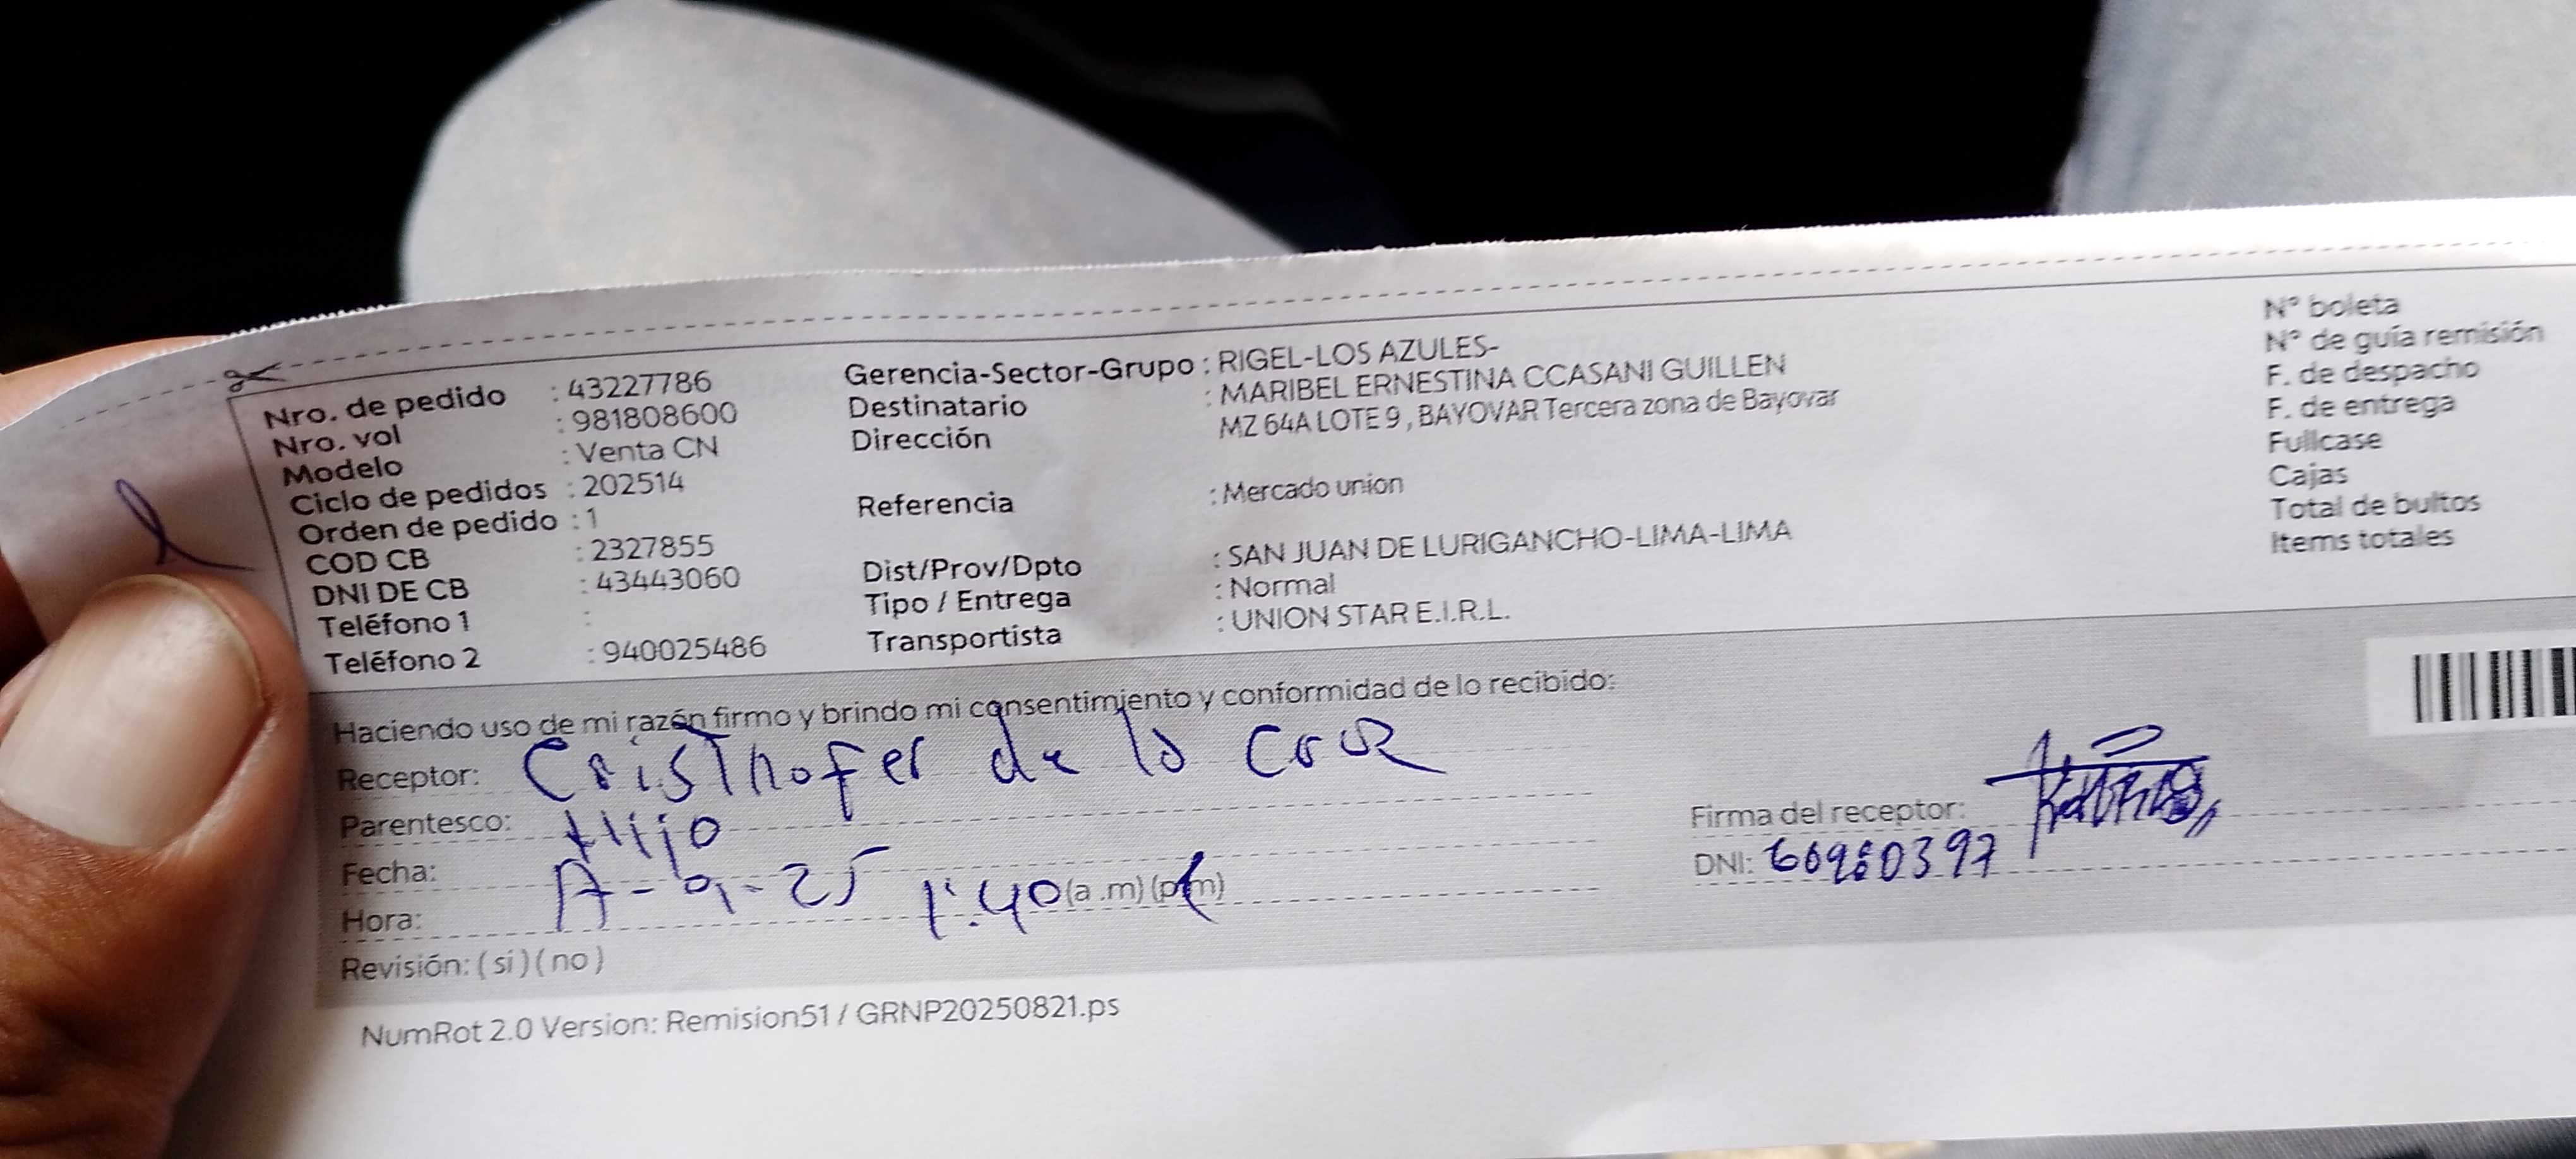 Nro. de pedido : 43227786
Nro. vol : 981808600
Modelo : Venta CN
Ciclo de pedidos : 202514
Orden de pedido : 1
COD CB : 2327855
DNI DE CB : 43443060
Teléfono 1 :
Teléfono 2 : 940025486
Gerencia-Sector-Grupo : RIGEL-LOS AZULES-
Destinatario : MARIBEL ERNESTINA CCASANI GUILLEN
Dirección MZ 64A LOTE 9 , BAYOVAR Tercera zona de Bayovar
Referencia : Mercado union
Dist/Prov/Dpto : SAN JUAN DE LURIGANCHO-LIMA-LIMA
Tipo / Entrega : Normal
Transportista : UNION STAR E.I.R.L.
N° boleta
N° de guía remisión
F. de despacho
F. de entrega
Fullcase
Cajas
Total de bultos
Items totales
Haciendo uso de mi razón firmo y brindo mi consentimiento y conformidad de lo recibido:
Receptor: Cristhofer de la Cruz
Parentesco: Hijo
Fecha:
Hora: 1:40 (a .m) (p.m)
Revisión: ( si ) ( no )
Firma del receptor:
DNI:
NumRot 2.0 Version: Remision51 / GRNP20250821.ps